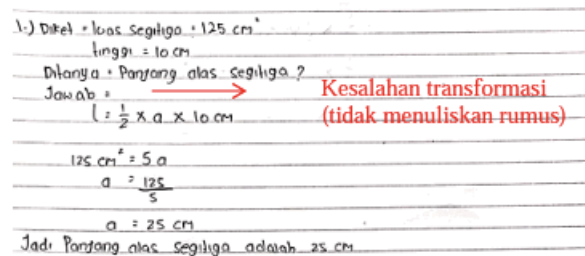 1.) Diket : luas segitiga : 125 cm²
tinggi = 10 cm
Ditanya : Panjang alas segitiga ?
Jawab :
Kesalahan transformasi
(tidak menuliskan rumus)
l : 1/2 x a x 10 cm
125 cm² = 5 a
a = 125/5
a = 25 cm
Jadi Panjang alas segitiga adalah 25 cm